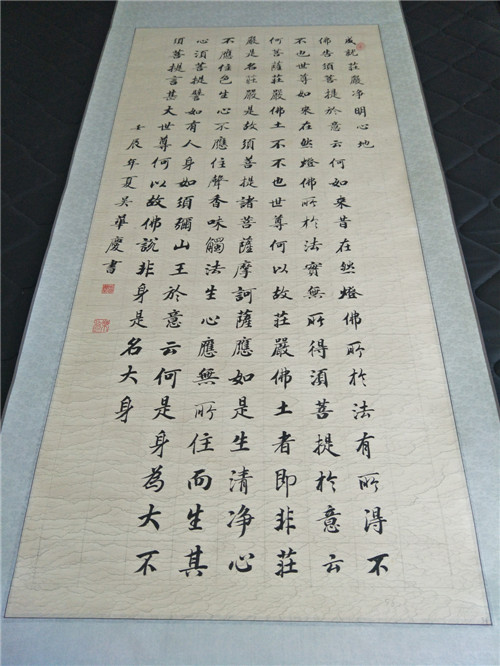 成就莊嚴净明心地
佛告須菩提於意云何如來昔在然燈佛所於法有所得不
不也世尊如來在然燈佛所於法實無所得須菩提於意云
何菩薩莊嚴佛土不不也世尊何以故莊嚴佛土者即非莊
嚴是名莊嚴是故須菩提諸菩薩摩訶薩應如是生清净心
不應住色生心不應住聲香味觸法生心應無所住而生其
心須菩提譬如有人身如須彌山王於意云何是身為大不
須菩提言甚大世尊何以故佛說非身是名大身
壬辰年夏吴華慶書